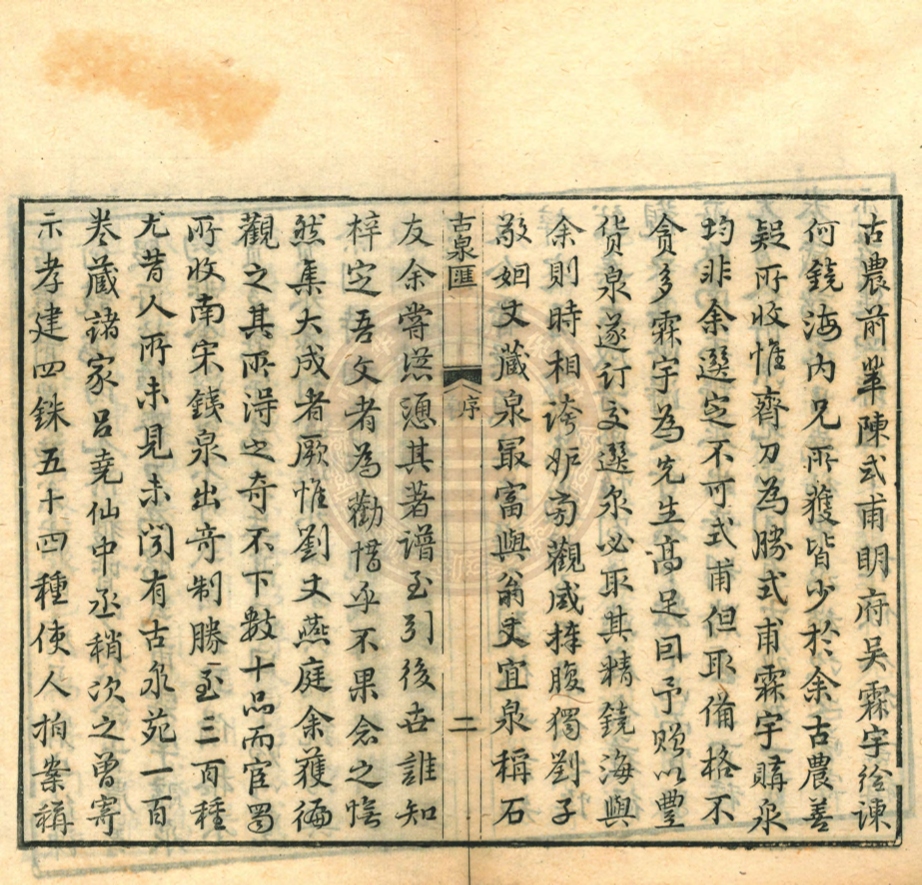 古農前輩陳式甫明府吳霖宇給諫
何鏡海內兄所獲皆少於余古農善
疑所收惟齊刀為勝式甫霖宇購泉
均非余選定不可式甫但取備格不
貪多霖宇為先生高足回予贈以豐
貨泉遂訂交選泉必取其精鏡海與
余則時相誇妒旁觀咸捧腹獨劉子
敬姻丈藏泉最富與翁丈宜泉稱石
古泉匯
序
二
友余嘗慫恿其著譜至引後世誰知
梓定吾文者為勸惜卒不果念之愴
然集大成者厥惟劉丈燕庭余獲徧
觀之其所得之奇不下數十品而宦蜀
所收南宋鐵泉出奇制勝至三百種
尤昔人所未見未聞有古泉苑一百
卷藏諸家呂堯仙中丞稍次之曾寄
示孝建四銖五十四種使人拍案稱